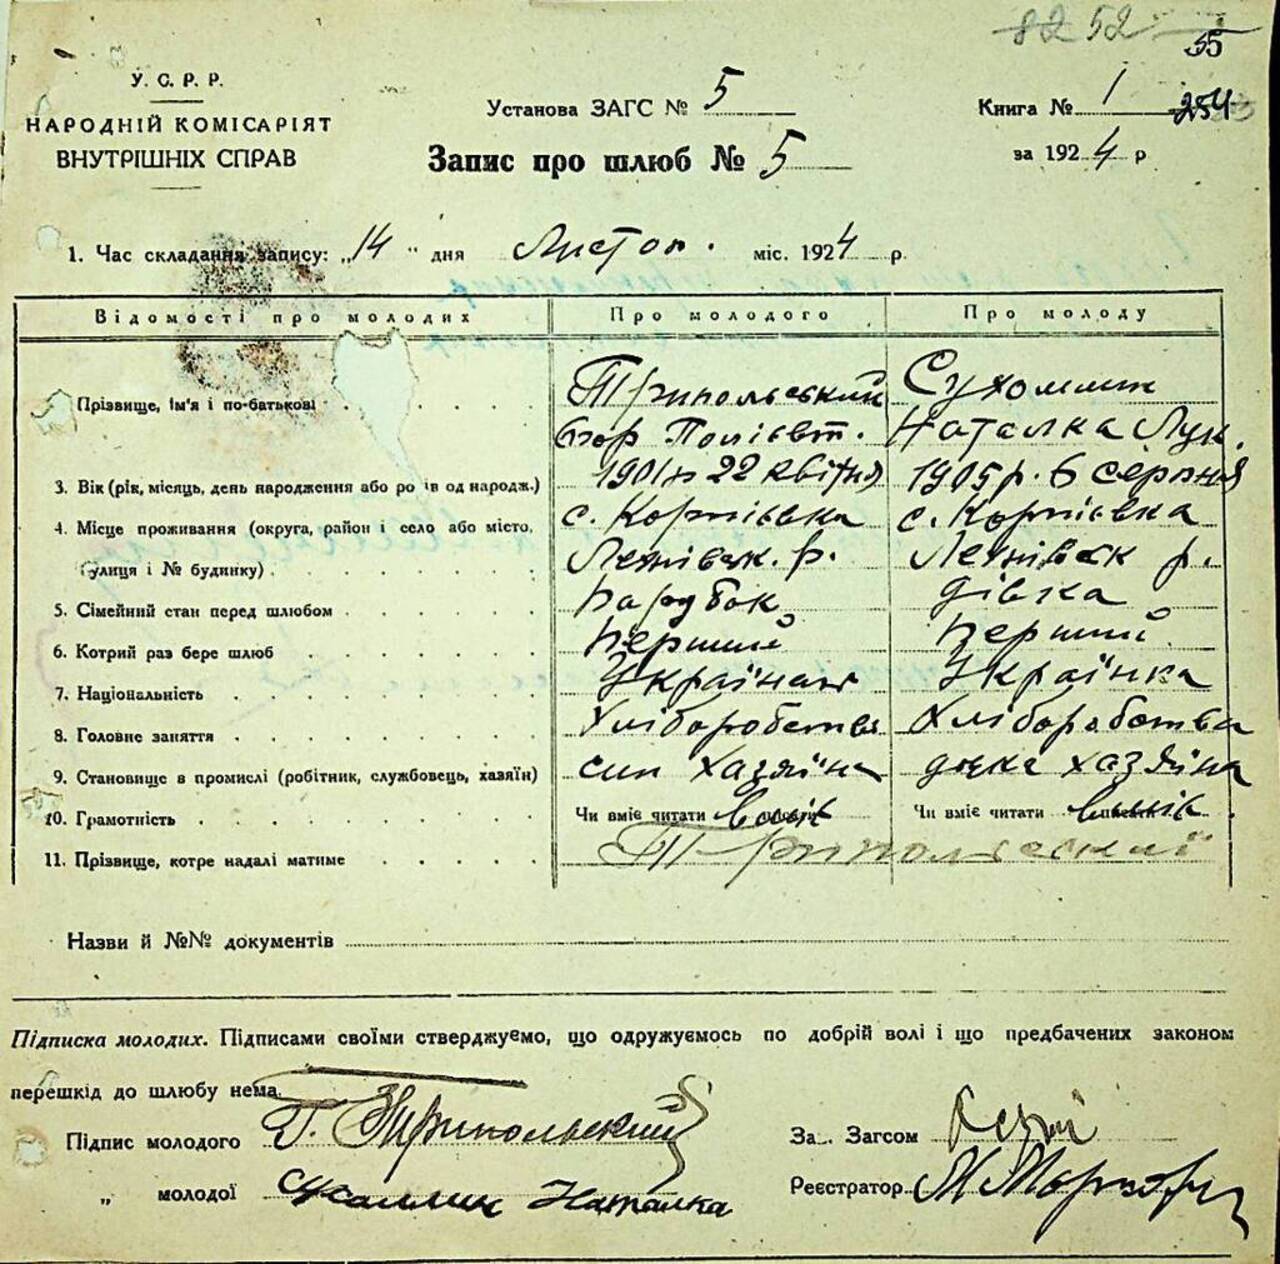 82 52
55
У. С. Р. Р.
НАРОДНІЙ КОМІСАРІЯТ
ВНУТРІШНІХ СПРАВ
Установа ЗАГС № 5
Запис про шлюб № 5
Книга № 1 254
за 1924 р
1. Час складання запису: „14" дня Листоп. міс. 1924 р.
Відомості про молодих Про молодого Про молоду
Прізвище, ім'я і по-батькові Трипольський Сухомлин
Полієвт. Наталка Лук.
3. Вік (рік, місяць, день народження або ро ів од народж.) 1901 р 22 квітня 1905 р. 6 серпня
4. Місце проживання (округа, район і село або місто, с. Корніївка с. Корніївка
вулиця і № будинку) р. р.
5. Сімейний стан перед шлюбом парубок дівка
6. Котрий раз бере шлюб перший перший
7. Національність Українець Українка
8. Головне заняття Хліборобство Хлібороботва
9. Становище в промислі (робітник, службовець, хазяїн) син хазяїна дочка хазяїна
10. Грамотність Чи вміє читати вміє Чи вміє читати вміє
11. Прізвище, котре надалі матиме Трипольський
Назви й №№ документів
Підписка молодих. Підписами своїми стверджуємо, що одружуємось по добрій волі і що предбачених законом
перешкід до шлюбу нема.
Підпис молодого Г. Трипольський За.. Загсом
„ молодої Сухомлин Наталка Реєстратор М